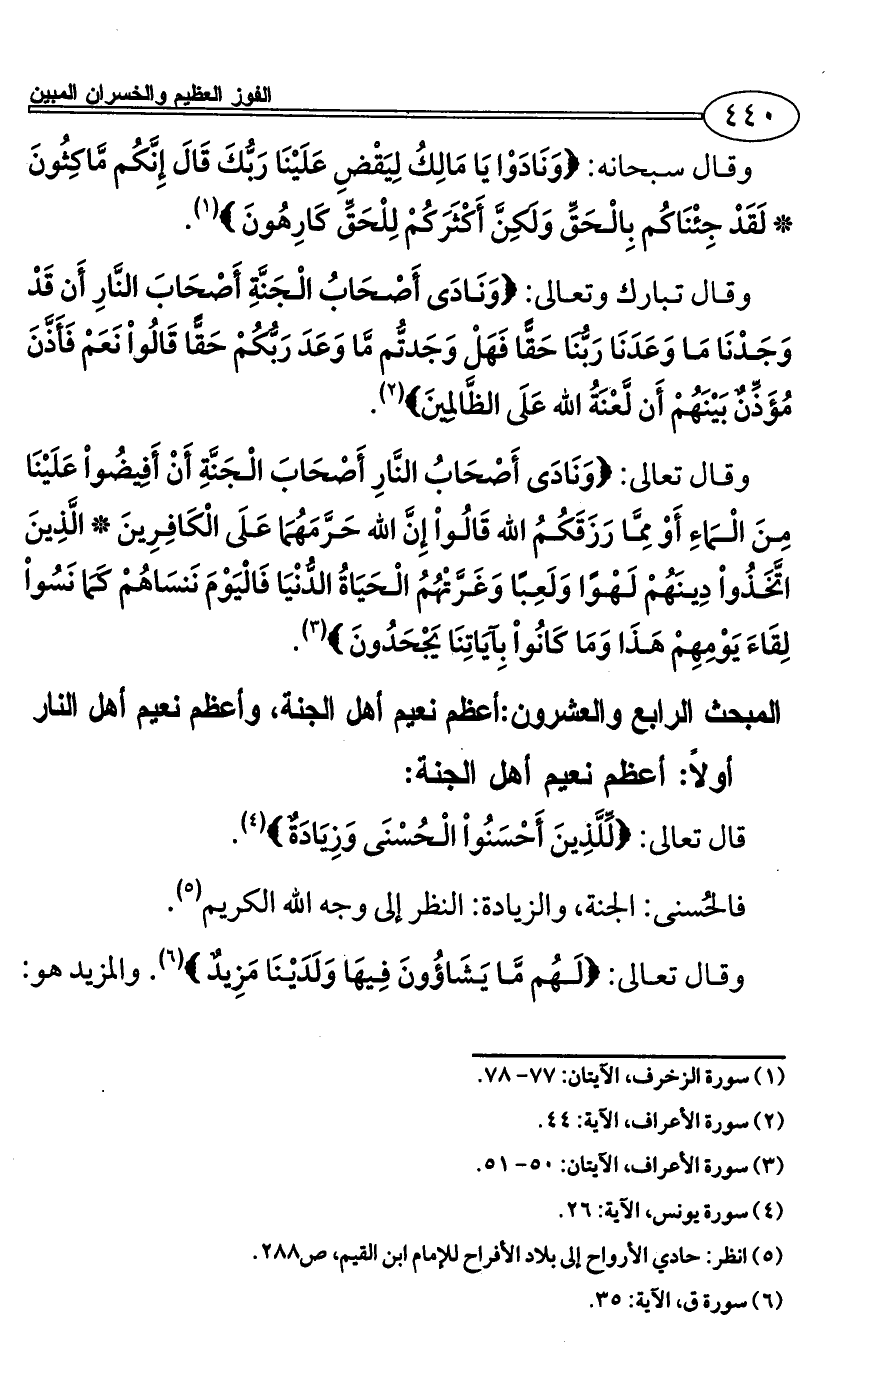 الفوز العظيم والخسران المبين
٤٤٠
وقال سبحانه: ﴿وَنَادَوْا يَا مَالِكُ لِيَقْضِ عَلَيْنَا رَبُّكَ قَالَ إِنَّكُم مَّاكِثُونَ
* لَقَدْ جِئْنَاكُم بِالْحَقِّ وَلَكِنَّ أَكْثَرَكُمْ لِلْحَقِّ كَارِهُونَ﴾(١).
وقال تبارك وتعالى: ﴿وَنَادَى أَصْحَابُ الْجَنَّةِ أَصْحَابَ النَّارِ أَن قَدْ
وَجَدْنَا مَا وَعَدَنَا رَبُّنَا حَقًّا فَهَلْ وَجَدتُّم مَّا وَعَدَ رَبُّكُمْ حَقًّا قَالُواْ نَعَمْ فَأَذَّنَ
مُؤَذِّنٌ بَيْنَهُمْ أَن لَّعْنَةُ الله عَلَى الظَّالِمِينَ﴾(٢).
وقال تعالى: ﴿وَنَادَى أَصْحَابُ النَّارِ أَصْحَابَ الْجَنَّةِ أَنْ أَفِيضُواْ عَلَيْنَا
مِنَ الْمَاءِ أَوْ مِمَّا رَزَقَكُمُ الله قَالُواْ إِنَّ الله حَرَّمَهُمَا عَلَى الْكَافِرِينَ * الَّذِينَ
اتَّخَذُواْ دِينَهُمْ لَهْوًا وَلَعِبًا وَغَرَّتْهُمُ الْحَيَاةُ الدُّنْيَا فَالْيَوْمَ نَنسَاهُمْ كَمَا نَسُواْ
لِقَاءَ يَوْمِهِمْ هَذَا وَمَا كَانُواْ بِآيَاتِنَا يَجْحَدُونَ﴾(٣).
المبحث الرابع والعشرون:أعظم نعيم أهل الجنة، وأعظم نعيم أهل النار
أولاً: أعظم نعيم أهل الجنة:
قال تعالى: ﴿لِّلَّذِينَ أَحْسَنُواْ الْحُسْنَى وَزِيَادَةٌ﴾(٤).
فالحُسنى: الجنة، والزيادة: النظر إلى وجه الله الكريم(٥).
وقال تعالى: ﴿لَهُم مَّا يَشَاؤُونَ فِيهَا وَلَدَيْنَا مَزِيدٌ﴾(٦). والمزيد هو:
(١) سورة الزخرف، الآيتان: ٧٧- ٧٨.
(٢) سورة الأعراف، الآية: ٤٤.
(٣) سورة الأعراف، الآيتان: ٥٠- ٥١.
(٤) سورة يونس، الآية: ٢٦.
(٥) انظر: حادي الأرواح إلى بلاد الأفراح للإمام ابن القيم، ص٢٨٨.
(٦) سورة ق، الآية: ٣٥.